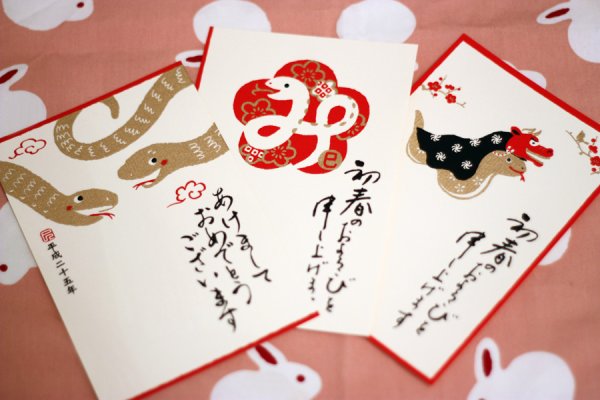 あけまして
おめでとう
ございます
平成二十五年
み
巳
初春の
およろこびを
申し上げます
初春の
およろこびを
申し上げます